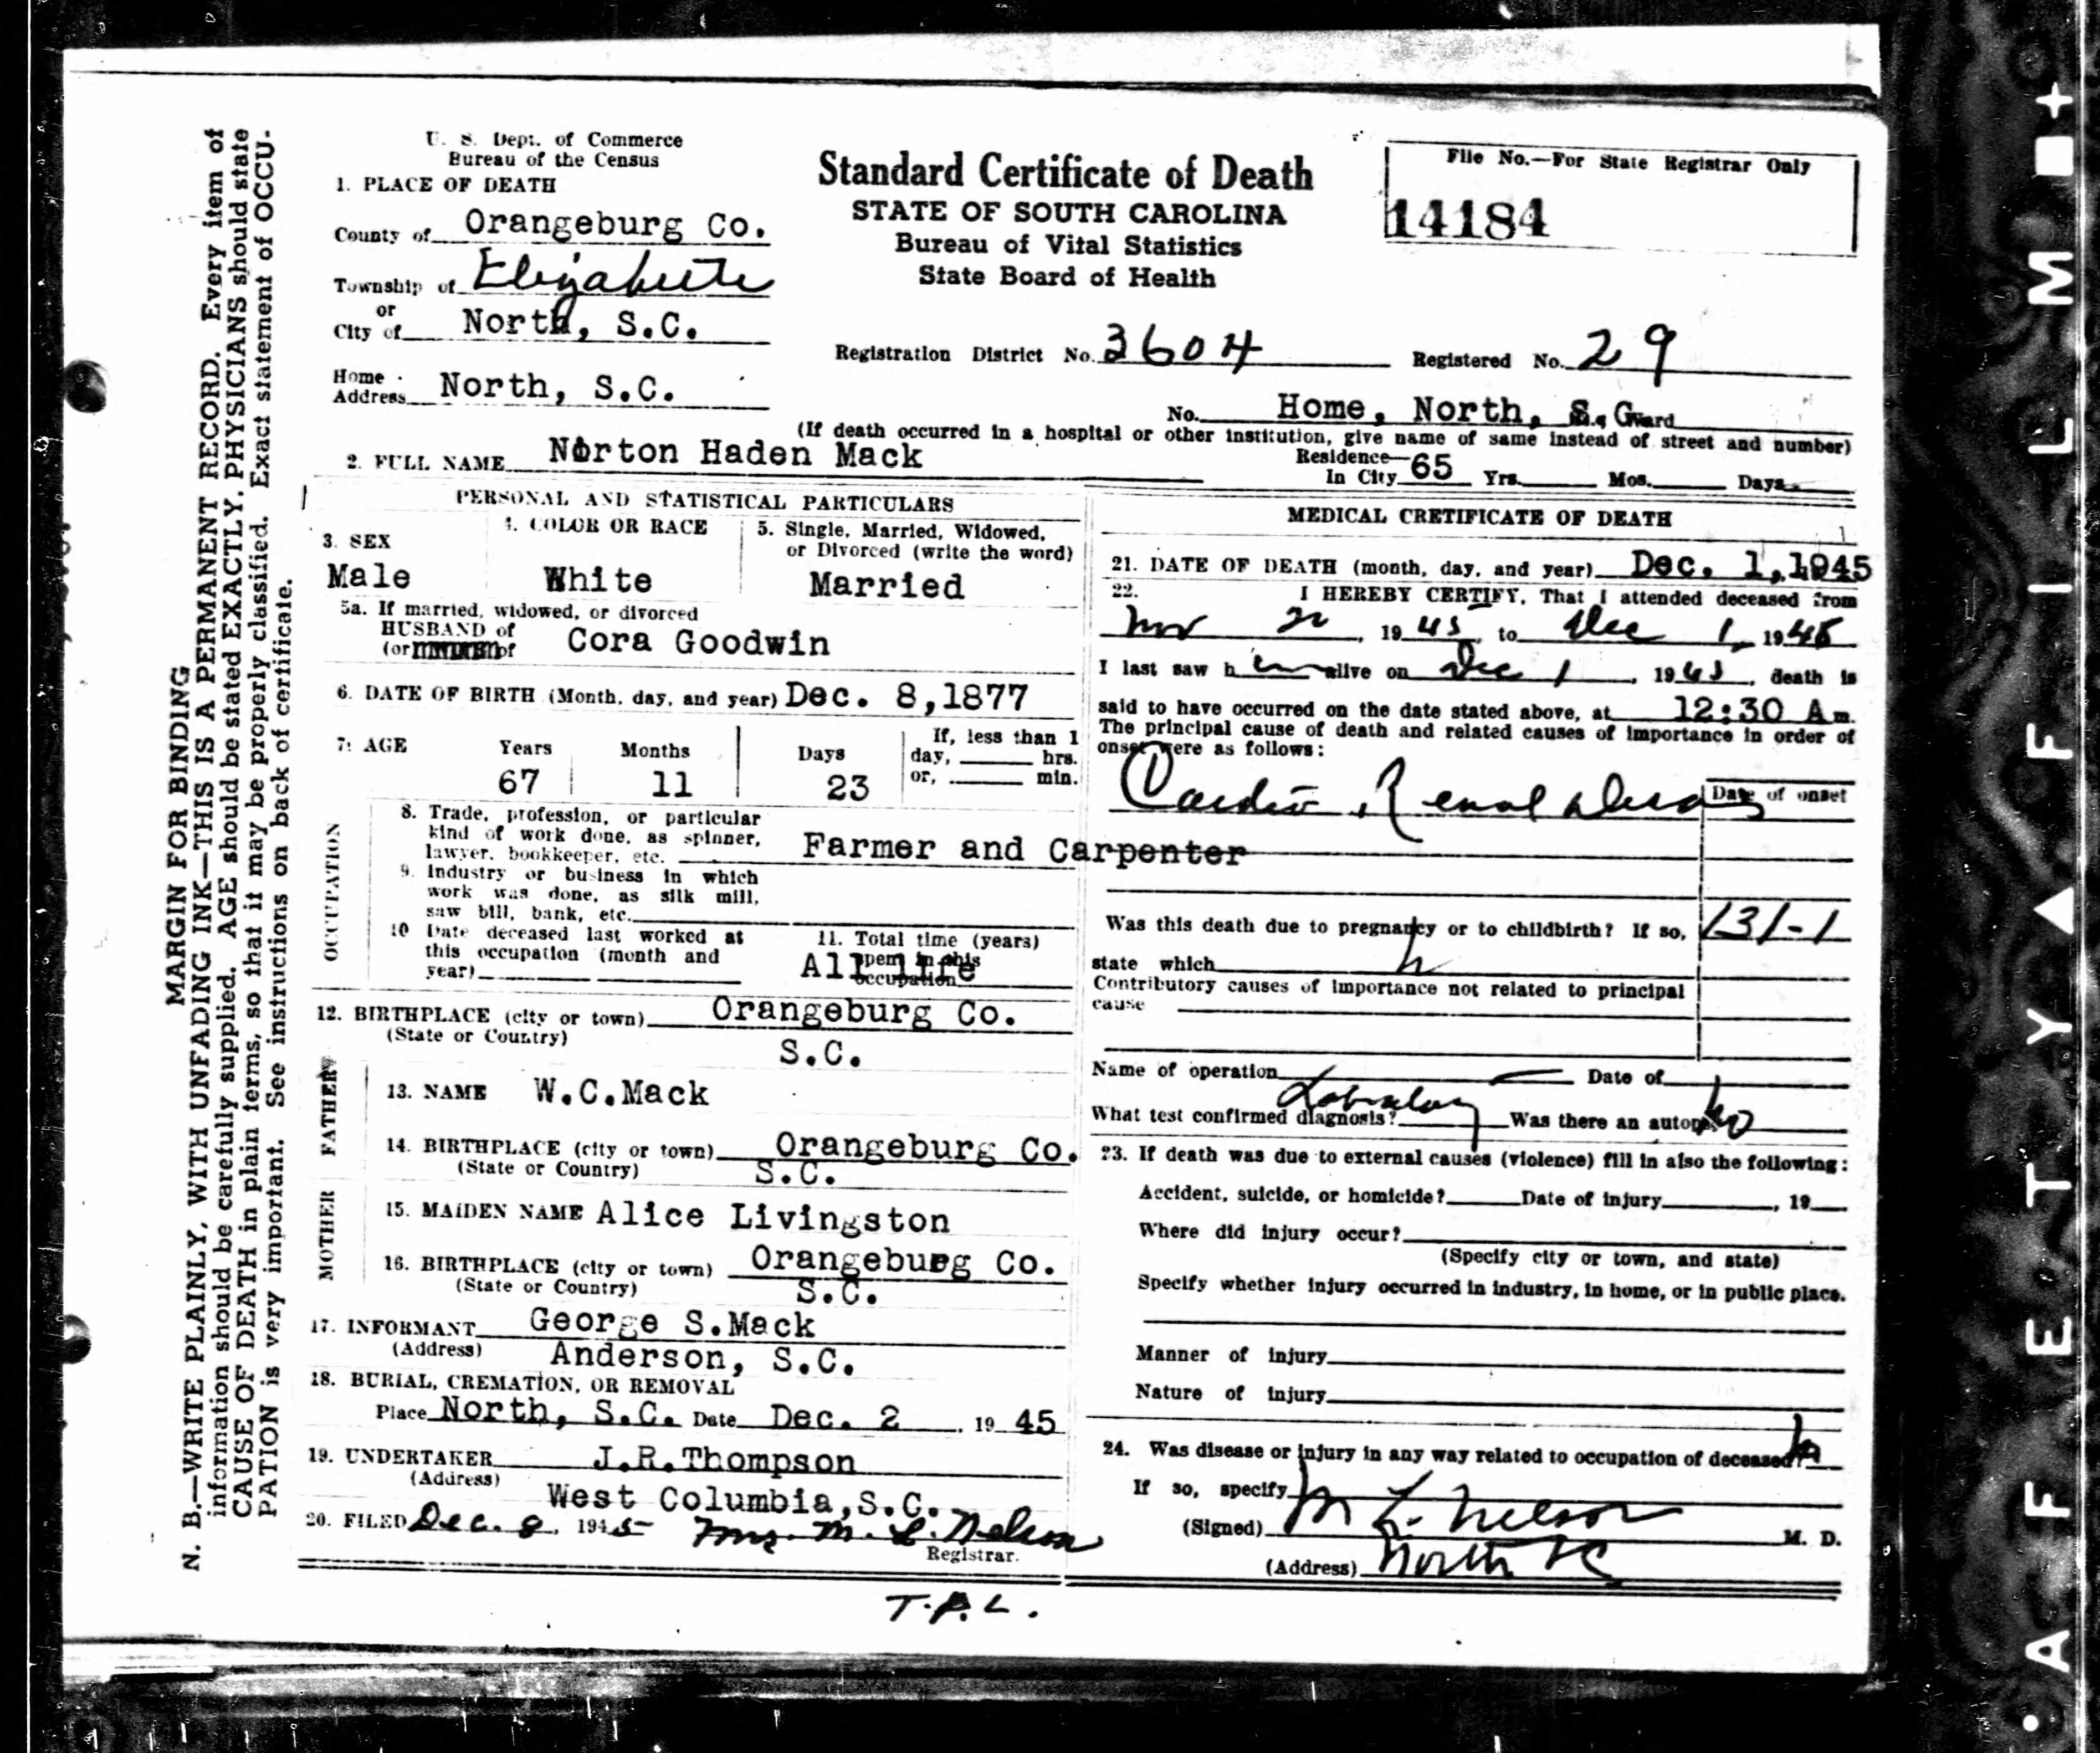 U. S. Dept. of Commerce
Bureau of the Census
1. PLACE OF DEATH
County of Orangeburg Co.
Township of Elizabeth
or
City of North, S.C.
Home
Address North, S.C.
Standard Certificate of Death
STATE OF SOUTH CAROLINA
Bureau of Vital Statistics
State Board of Health
File No.—For State Registrar Only
14184
Registration District No. 3604 Registered No. 29
No. Home, North, S.C. Ward
(If death occurred in a hospital or other institution, give name of same instead of street and number)
2. FULL NAME Norton Haden Mack
Residence—
In City 65 Yrs. Mos. Days
PERSONAL AND STATISTICAL PARTICULARS
3. SEX
Male
4. COLOR OR RACE
White
5. Single, Married, Widowed,
or Divorced (write the word)
Married
5a. If married, widowed, or divorced
HUSBAND of
(or of Cora Goodwin
6. DATE OF BIRTH (Month, day, and year) Dec. 8,1877
7. AGE Years Months Days
67 11 23
If, less than 1
day, hrs.
or, min.
OCCUPATION
8. Trade, profession, or particular
kind of work done, as spinner,
lawyer, bookkeeper, etc. Farmer and Carpenter
9. Industry or business in which
work was done, as silk mill,
saw bill, bank, etc.
10 Date deceased last worked at
this occupation (month and
year)
11. Total time (years)
spent in this
occupation
All life
12. BIRTHPLACE (city or town) Orangeburg Co.
(State or Country) S.C.
FATHER
13. NAME W.C.Mack
14. BIRTHPLACE (city or town) Orangeburg Co.
(State or Country) S.C.
MOTHER
15. MAIDEN NAME Alice Livingston
16. BIRTHPLACE (city or town) Orangeburg Co.
(State or Country) S.C.
17. INFORMANT George S.Mack
(Address) Anderson, S.C.
18. BURIAL, CREMATION, OR REMOVAL
Place North, S.C. Date Dec. 2, 19 45
19. UNDERTAKER J.R.Thompson
(Address) West Columbia,S.C.
20. FILED Dec. 8, 1945 Mrs. M. L. Nelson
Registrar.
MEDICAL CRETIFICATE OF DEATH
21. DATE OF DEATH (month, day, and year) Dec. 1,1945
22. I HEREBY CERTIFY, That I attended deceased from
Nov 1945, to Dec 1, 1945
I last saw him alive on Dec 1, 1945, death is
said to have occurred on the date stated above, at 12:30 A m.
The principal cause of death and related causes of importance in order of
onset were as follows:
Cardio Renal Disease
Date of onset
Was this death due to pregnancy or to childbirth? If so, 131-1
state which
Contributory causes of importance not related to principal
cause
Name of operation Date of
What test confirmed diagnosis? Was there an autopsy? No
23. If death was due to external causes (violence) fill in also the following:
Accident, suicide, or homicide? Date of injury , 19
Where did injury occur?
(Specify city or town, and state)
Specify whether injury occurred in industry, in home, or in public place.
Manner of injury
Nature of injury
24. Was disease or injury in any way related to occupation of deceased?
If so, specify
(Signed) M L. Nelson M. D.
(Address) North SC
T.P.L.
MARGIN FOR BINDING
N. B.—WRITE PLAINLY, WITH UNFADING INK—THIS IS A PERMANENT RECORD. Every item of
information should be carefully supplied. AGE should be stated EXACTLY. PHYSICIANS should state
CAUSE OF DEATH in plain terms, so that it may be properly classified. Exact statement of OCCU-
PATION is very important. See instructions on back of certificate.
AFETY FILM